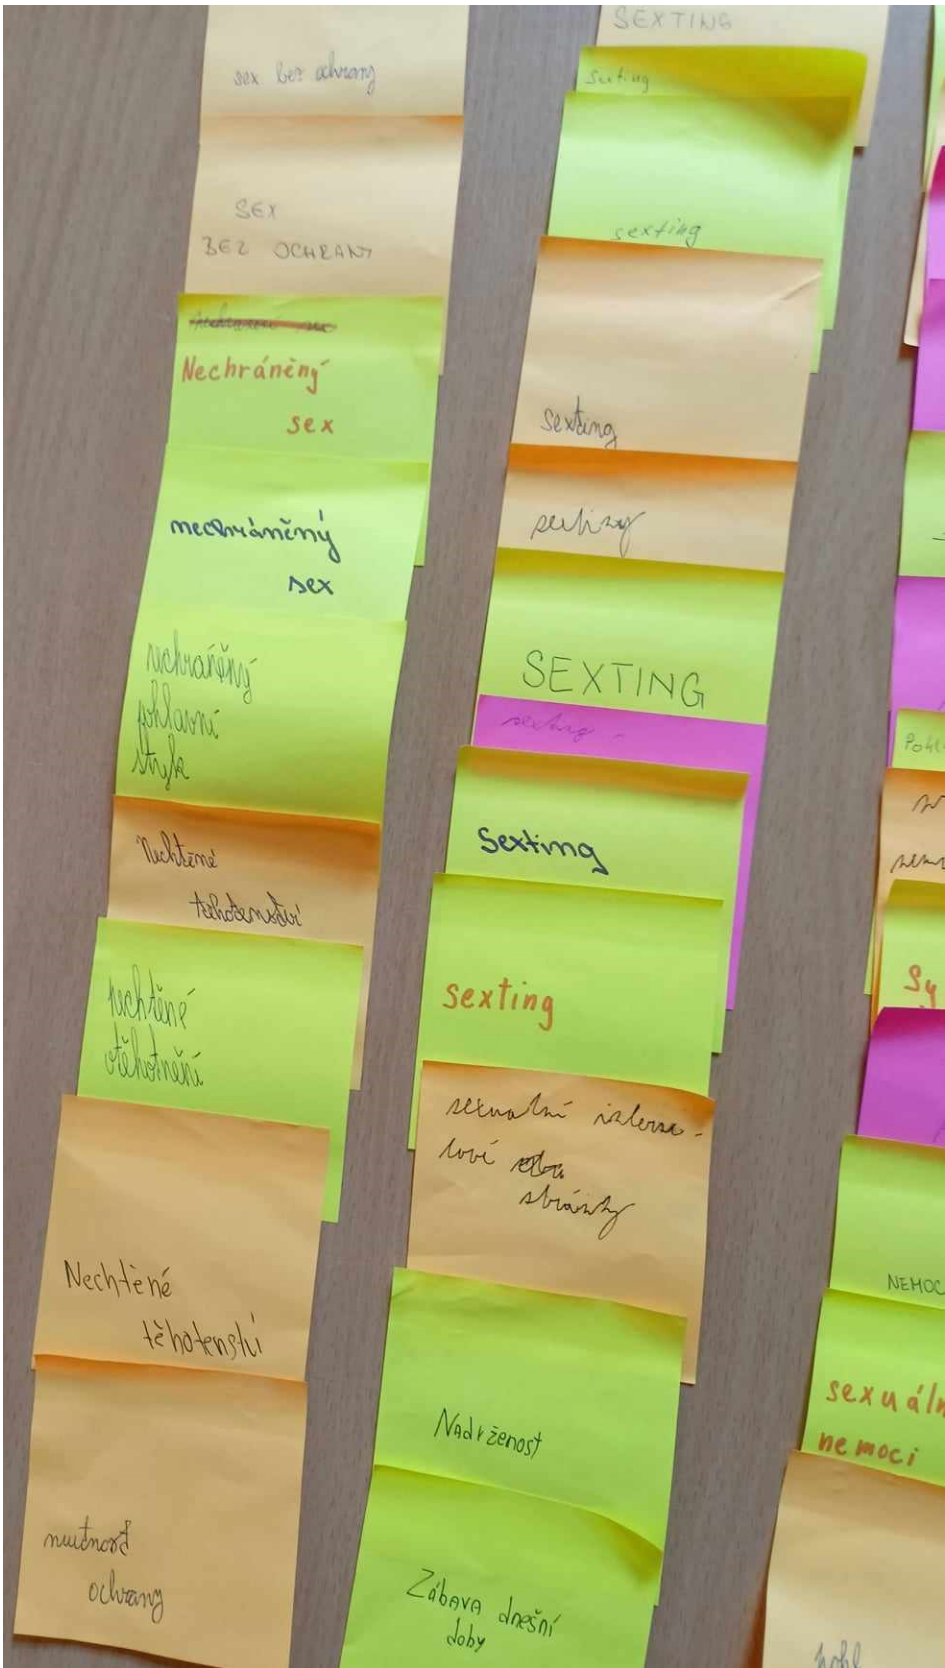 sex bez ochrany
SEX
BEZ OCHRANY
Nechráněný
sex
nechráněný
sex
nechráněný
pohlavní
styk
Nechtěné
těhotenství
nechtěné
otěhotnění
Nechtěné
těhotenství
nutnost
ochrany
SEXTING
Sexting
sexting
sexting
sexting
SEXTING
sexting
Sexting
sexting
sexualní
stránky
Nadrženost
Zábava dnešní
doby
Pohl
Sy
NEMOC
sexuáln
nemoci
pohl